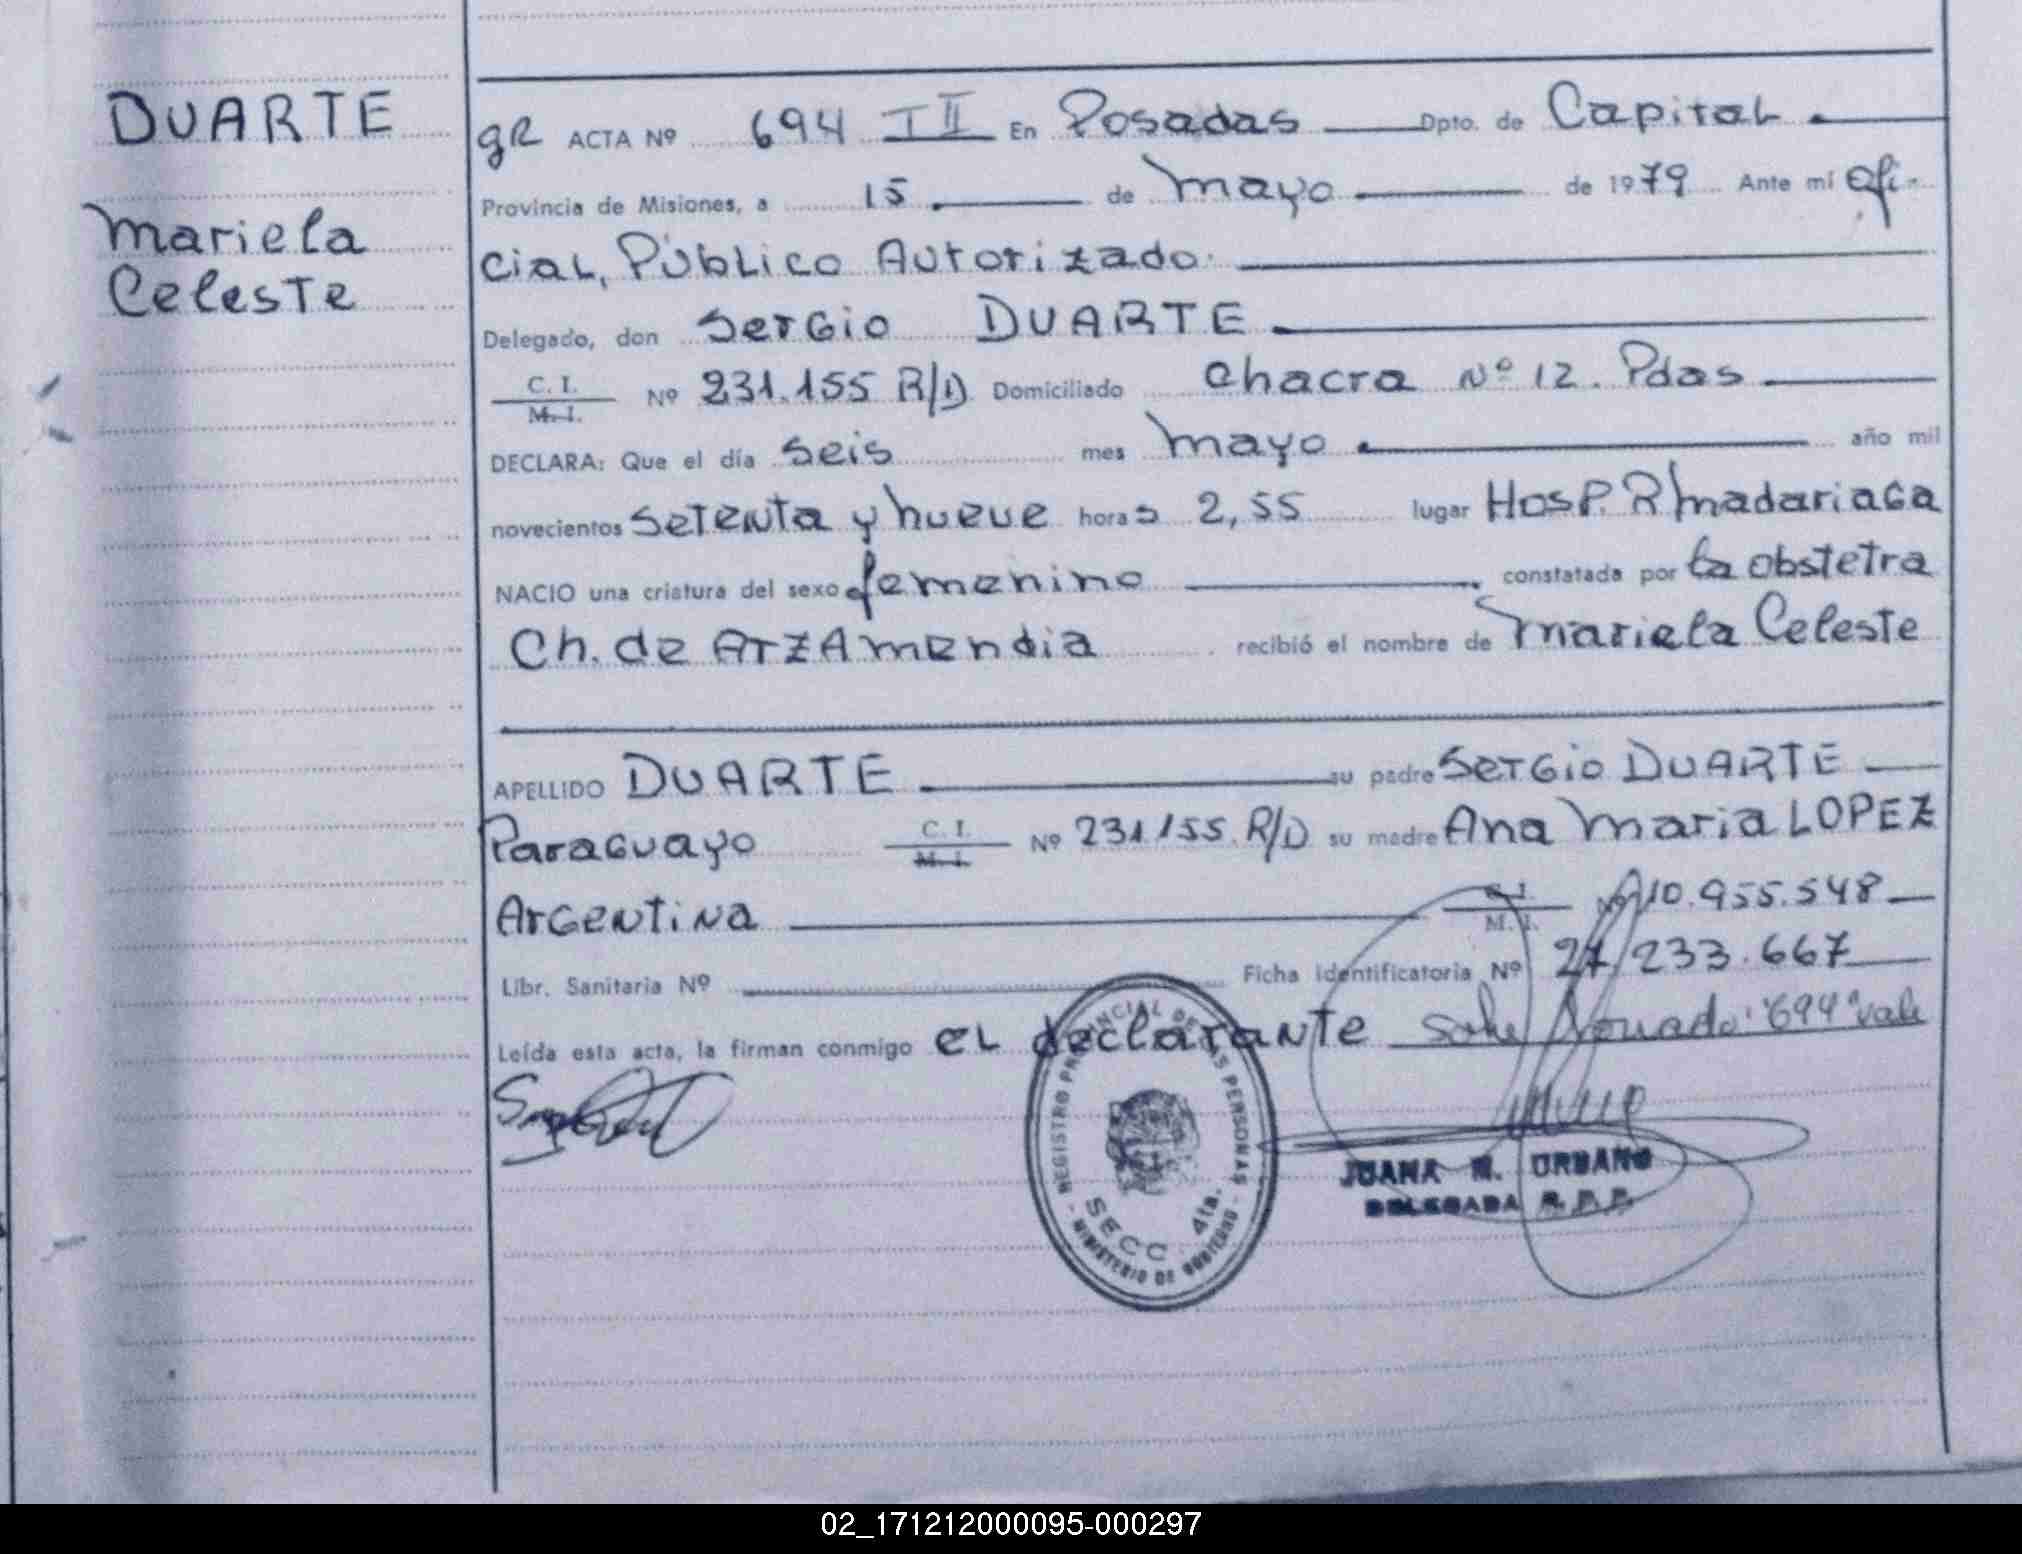 DUARTE
Mariela
Celeste
gR ACTA Nº 694 II En Posadas Dpto. de Capital
Provincia de Misiones, a 15 de Mayo de 1979 Ante mi Ofi-
cial, Público Autorizado.
Delegado, don Sergio DUARTE
C. I. M. I. Nº 231.155 R/D Domiciliado Chacra Nº 12. Pdas
DECLARA: Que el día seis mes Mayo año mil
novecientos setenta y nueve horas 2,55 lugar Hosp. R Madariaga
NACIO una criatura del sexo femenino constatada por la obstetra
Ch. de Arzamendia recibió el nombre de Mariela Celeste
APELLIDO DUARTE su padre Sergio DUARTE
Paraguayo C. I. M. I. Nº 231.155. R/D su madre Ana Maria LOPEZ
Argentina C. I. M. I. Nº 10.955.548
Libr. Sanitaria Nº Ficha Identificatoria Nº 27/233.667
Leída esta acta, la firman conmigo el declarante "694" vale
REGISTRO PROVINCIAL DE LAS PERSONAS
SECC. 4ta.
- MINISTERIO DE GOBIERNO -
JUANA M. URBANO
DELEGADA R.P.P.
02_171212000095-000297